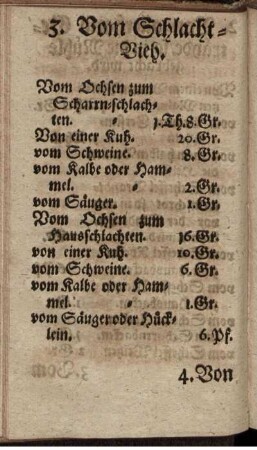 3. Vom Schlacht-
Vieh.
Vom Ochsen zum
Scharrn-schlach-
ten. - 1.Th.8.Gr.
Von einer Kuh. 20.Gr.
vom Schweine. 8.Gr.
vom Kalbe oder Ham-
mel. - 2.Gr.
vom Säuger. 1.Gr.
Vom Ochsen zum
Hausschlachten. 16.Gr.
von einer Kuh. 10.Gr.
vom Schweine. 6.Gr.
vom Kalbe oder Ham-
mel. - 1.Gr.
vom Säuger oder Hück-
lein. 6.Pf.
4.Von